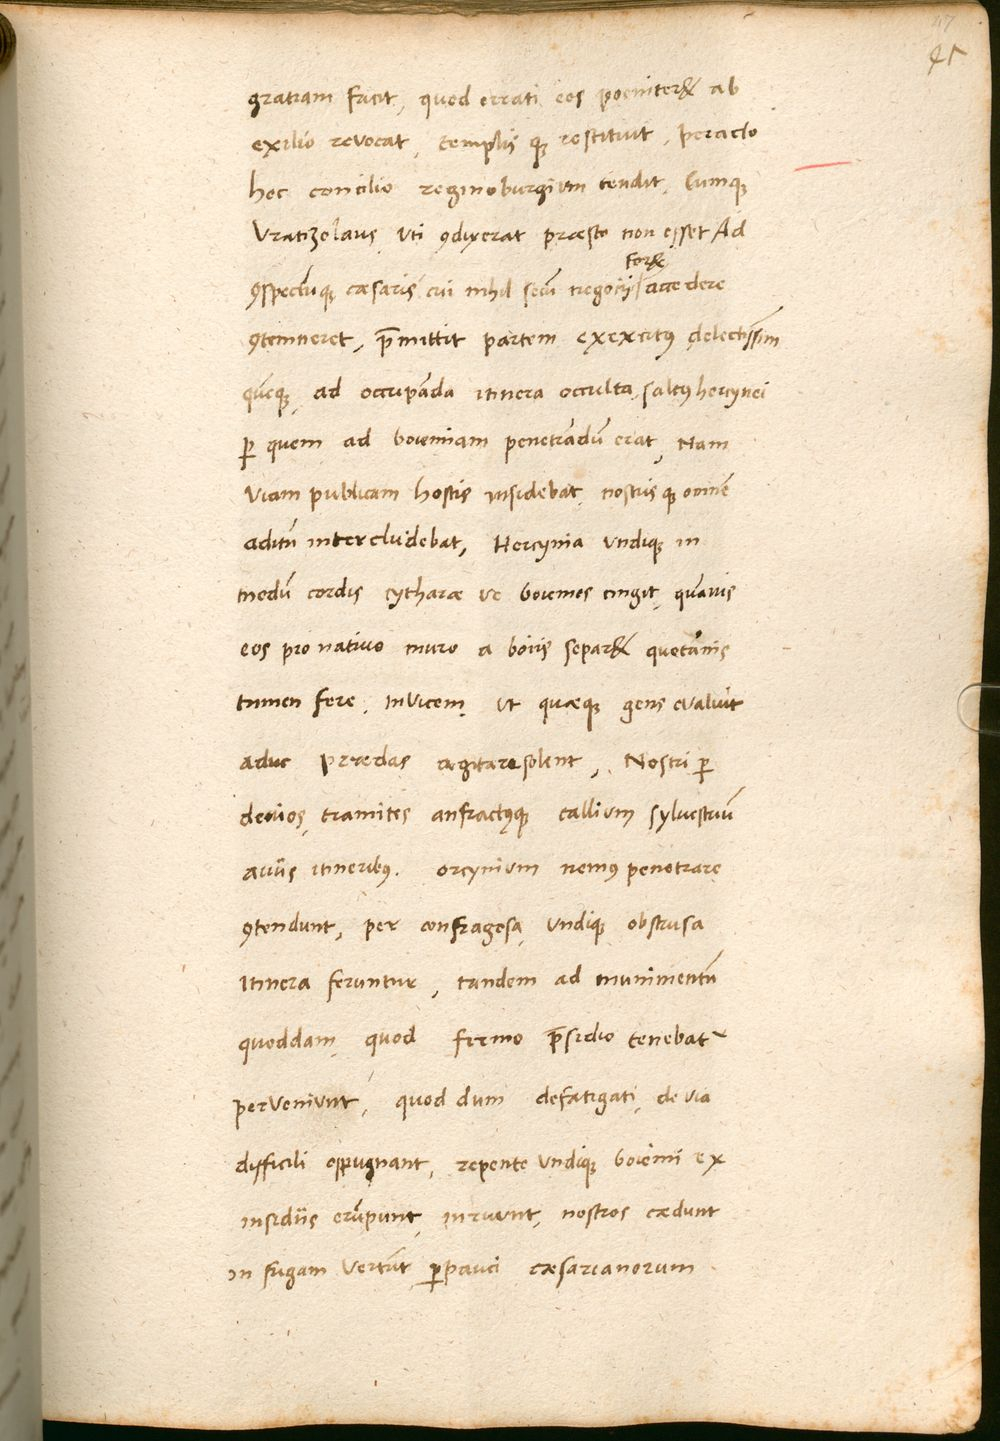 47
41
gratiam facit, quod errati eos poeniter& ab
exilio revocat, templis qꝫ restituit, peracto
hoc concilio reginoburgium tendit, Cumqꝫ
Vratizolaus uti ꝯdixerat præsto non esset Ad
for&
ꝯspectūqꝫ cæsaris cui nihil secū negocij accedere
ꝯtemneret, p̄mittit partem exexcitꝰ delectissim
quēqꝫ ad occupāda itinera occulta saltꝰ hercynei
ꝑ quem ad boiemiam penetrādū erat, Nam
viam publicam hostis insidebat, nostrisqꝫ omnē
aditū intercludebat, Hercynia undiqꝫ in
modū cordis cytharæ ve boiemos cingit, quāvis
eos pro nativo muro a boiis separ& quotānis
tamen fere, invicem, ut quæqꝫ gens evaluit
aduc prædas agitare solent, Nostri ꝑ
devios, tramites anfractꝰqꝫ callium sylvestriū
aviis itineribꝰ. orcynium nemꝰ penetrare
ꝯtendunt, per confragosa, undiqꝫ obstrusa
itinera feruntur, tandem ad munimentū
quoddam, quod firmo p̄sidio tenebat
perveniunt, quod dum defatigati, de via
difficili oppugnant, repente undiqꝫ boiemi ex
insidiis erūpunt, inruunt, nostros cædunt
in fugam vertūt, ꝑpauci cæsarianorum